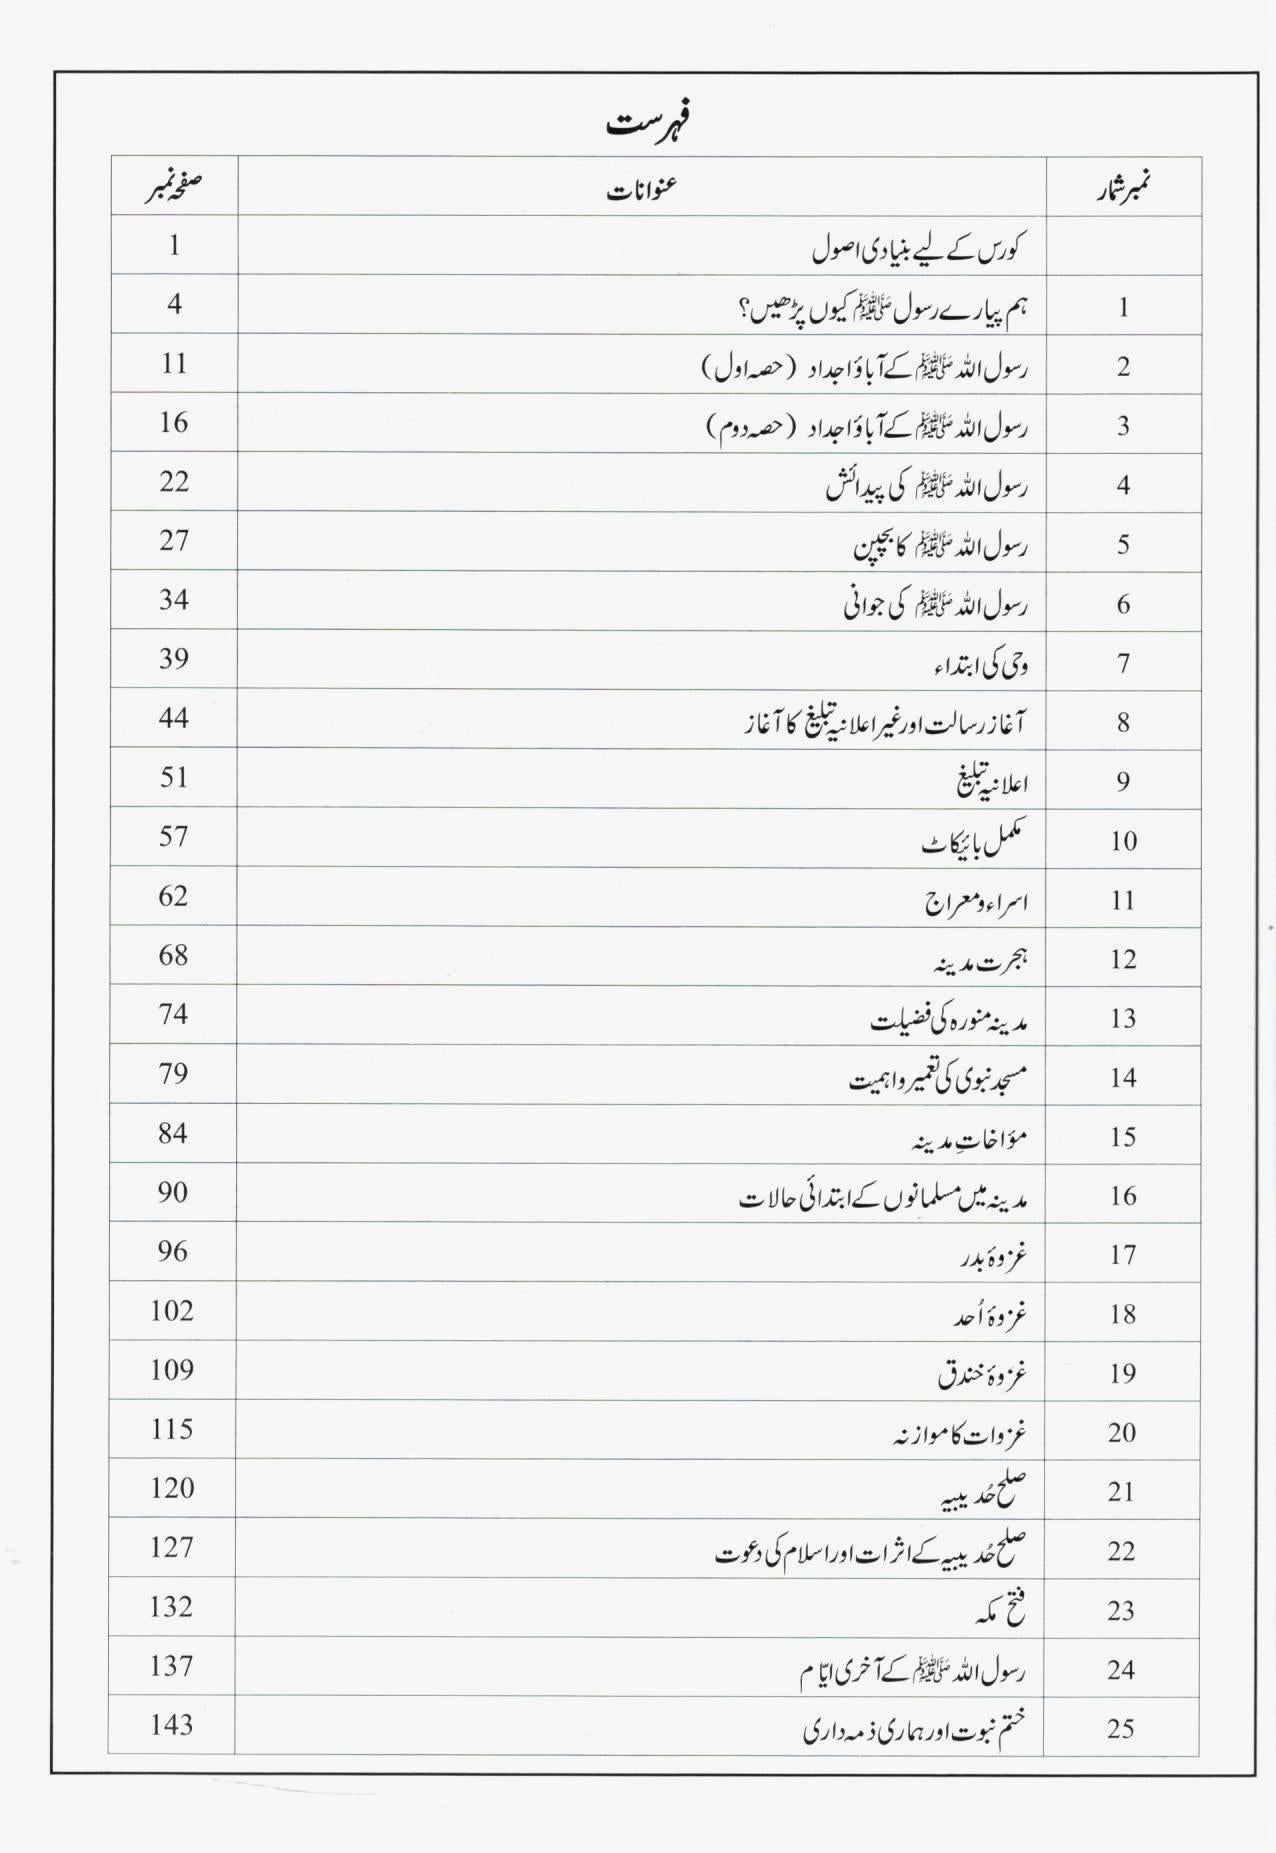 فہرست
نمبر شمار عنوانات صفحہ نمبر
کورس کے لیے بنیادی اصول 1
1 ہم پیارے رسول ﷺ کیوں پڑھیں؟ 4
2 رسول اللہ ﷺ کے آباؤ اجداد (حصہ اول) 11
3 رسول اللہ ﷺ کے آباؤ اجداد (حصہ دوم) 16
4 رسول اللہ ﷺ کی پیدائش 22
5 رسول اللہ ﷺ کا بچپن 27
6 رسول اللہ ﷺ کی جوانی 34
7 وحی کی ابتداء 39
8 آغاز رسالت اور غیر اعلانیہ تبلیغ کا آغاز 44
9 اعلانیہ تبلیغ 51
10 مکمل بائیکاٹ 57
11 اسراء و معراج 62
12 ہجرت مدینہ 68
13 مدینہ منورہ کی فضیلت 74
14 مسجد نبوی کی تعمیر و اہمیت 79
15 مؤاخاتِ مدینہ 84
16 مدینہ میں مسلمانوں کے ابتدائی حالات 90
17 غزوۂ بدر 96
18 غزوۂ اُحد 102
19 غزوۂ خندق 109
20 غزوات کا موازنہ 115
21 صلح حُدیبیہ 120
22 صلح حُدیبیہ کے اثرات اور اسلام کی دعوت 127
23 فتح مکہ 132
24 رسول اللہ ﷺ کے آخری ایّام 137
25 ختم نبوت اور ہماری ذمہ داری 143